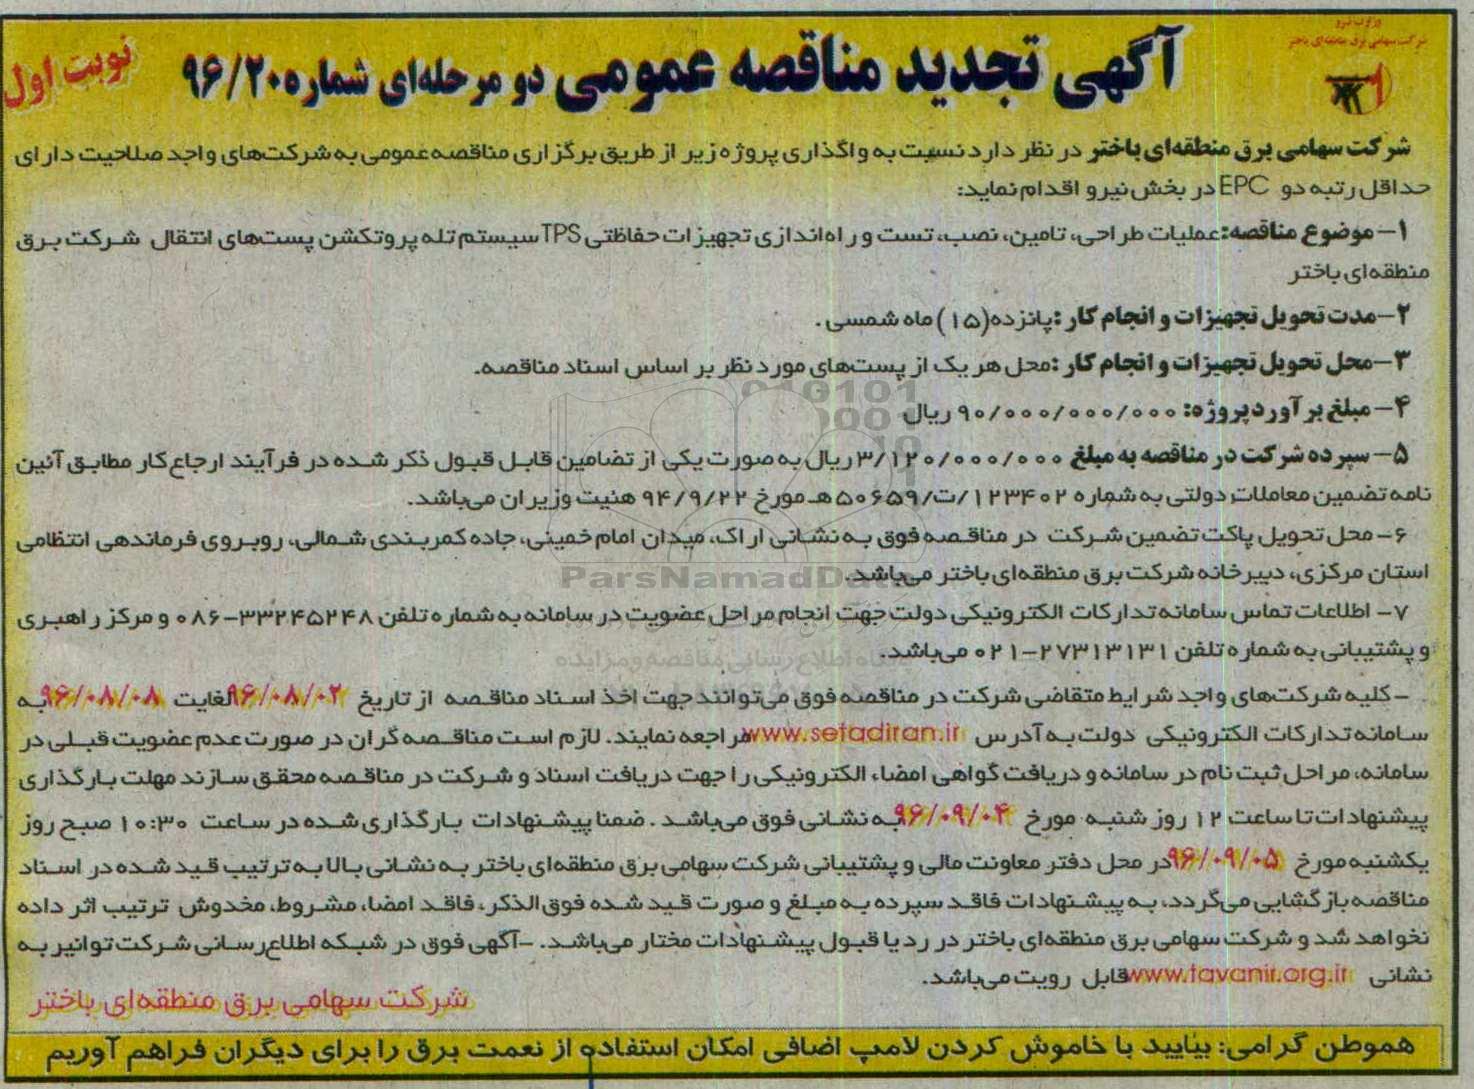 وزارت نیرو
شرکت سهامی برق منطقه‌ای باختر
آگهی تجدید مناقصه عمومی دو مرحله‌ای شماره ۹۶/۲۰
نوبت اول
شرکت سهامی برق منطقه‌ای باختر در نظر دارد نسبت به واگذاری پروژه زیر از طریق برگزاری مناقصه عمومی به شرکت‌های واجد صلاحیت دارای
حداقل رتبه دو EPC در بخش نیرو اقدام نماید:
۱- موضوع مناقصه: عملیات طراحی، تامین، نصب، تست و راه‌اندازی تجهیزات حفاظتی TPS سیستم تله پروتکشن پست‌های انتقال شرکت برق
منطقه‌ای باختر
۲- مدت تحویل تجهیزات و انجام کار : پانزده (۱۵) ماه شمسی .
۳- محل تحویل تجهیزات و انجام کار : محل هر یک از پست‌های مورد نظر بر اساس اسناد مناقصه.
۴- مبلغ برآورد پروژه: ۹۰/۰۰۰/۰۰۰/۰۰۰ ریال
۵- سپرده شرکت در مناقصه به مبلغ ۳/۱۲۰/۰۰۰/۰۰۰ ریال به صورت یکی از تضامین قابل قبول ذکر شده در فرآیند ارجاع کار مطابق آئین
نامه تضمین معاملات دولتی به شماره ۱۲۳۴۰۲/ت/۵۰۶۵۹هـ مورخ ۹۴/۹/۲۲ هئیت وزیران می‌باشد.
۶- محل تحویل پاکت تضمین شرکت در مناقصه فوق به نشانی اراک، میدان امام خمینی، جاده کمربندی شمالی، روبروی فرماندهی انتظامی
استان مرکزی، دبیرخانه شرکت برق منطقه‌ای باختر می‌باشد.
ParsNamadData
۷- اطلاعات تماس سامانه تدارکات الکترونیکی دولت جهت انجام مراحل عضویت در سامانه به شماره تلفن ۳۳۲۴۵۲۴۸-۰۸۶ و مرکز راهبری
و پشتیبانی به شماره تلفن ۲۷۳۱۳۱۳۱-۰۲۱ می‌باشد.
- کلیه شرکت‌های واجد شرایط متقاضی شرکت در مناقصه فوق می‌توانند جهت اخذ اسناد مناقصه از تاریخ ۹۶/۰۸/۰۲ لغایت ۹۶/۰۸/۰۸ به
سامانه تدارکات الکترونیکی دولت به آدرس www.setadiran.ir مراجعه نمایند. لازم است مناقصه گران در صورت عدم عضویت قبلی در
سامانه، مراحل ثبت نام در سامانه و دریافت گواهی امضاء الکترونیکی را جهت دریافت اسناد و شرکت در مناقصه محقق سازند مهلت بارگذاری
پیشنهادات تا ساعت ۱۲ روز شنبه مورخ ۹۶/۰۹/۰۴ به نشانی فوق می‌باشد . ضمنا پیشنهادات بارگذاری شده در ساعت ۱۰:۳۰ صبح روز
یکشنبه مورخ ۹۶/۰۹/۰۵ در محل دفتر معاونت مالی و پشتیبانی شرکت سهامی برق منطقه‌ای باختر به نشانی بالا به ترتیب قید شده در اسناد
مناقصه بازگشایی می‌گردد، به پیشنهادات فاقد سپرده به مبلغ و صورت قید شده فوق‌الذکر، فاقد امضا، مشروط، مخدوش ترتیب اثر داده
نخواهد شد و شرکت سهامی برق منطقه‌ای باختر در رد یا قبول پیشنهادات مختار می‌باشد. -آگهی فوق در شبکه اطلاع‌رسانی شرکت توانیر به
نشانی www.tavanir.org.ir قابل رویت می‌باشد.
شرکت سهامی برق منطقه‌ای باختر
هموطن گرامی: بیایید با خاموش کردن لامپ اضافی امکان استفاده از نعمت برق را برای دیگران فراهم آوریم